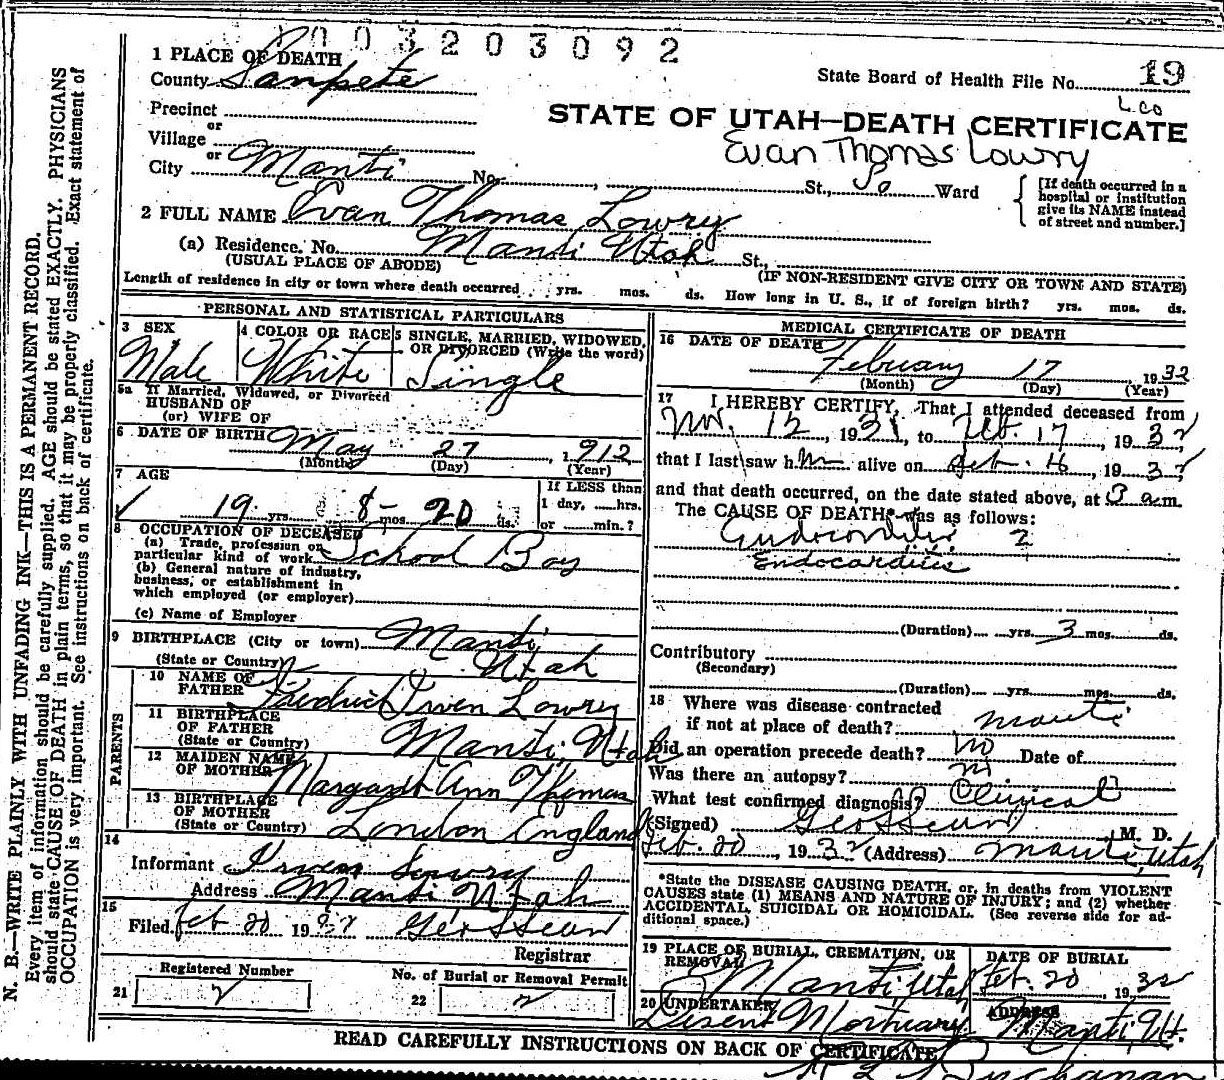 003203092
1 PLACE OF DEATH
County Sanpete
State Board of Health File No. 19
Precinct
or
Village
or
City Manti No. St., So Ward
STATE OF UTAH—DEATH CERTIFICATE
Evan Thomas Lowry
[If death occurred in a
hospital or institution
give its NAME instead
of street and number.]
2 FULL NAME Evan Thomas Lowry
(a) Residence. No. Manti Utah St.,
(USUAL PLACE OF ABODE) (IF NON-RESIDENT GIVE CITY OR TOWN AND STATE)
Length of residence in city or town where death occurred yrs. mos. ds. How long in U. S., if of foreign birth? yrs. mos. ds.
PERSONAL AND STATISTICAL PARTICULARS
3 SEX
Male
4 COLOR OR RACE
White
5 SINGLE, MARRIED, WIDOWED,
OR DIVORCED (Write the word)
Single
5a If Married, Widowed, or Divorced
HUSBAND OF
(or) WIFE OF
6 DATE OF BIRTH May 27, 1912
(Month) (Day) (Year)
7 AGE
19 yrs. 8 mos. 20 ds.
If LESS than
1 day, hrs.
or min.?
8 OCCUPATION OF DECEASED
(a) Trade, profession or
particular kind of work School Boy
(b) General nature of industry,
business, or establishment in
which employed (or employer)
(c) Name of Employer
9 BIRTHPLACE (City or town) Manti
(State or Country) Utah
PARENTS
10 NAME OF
FATHER Fredrick Irven Lowry
11 BIRTHPLACE
OF FATHER
(State or Country) Manti, Utah
12 MAIDEN NAME
OF MOTHER Margaret Ann Thomas
13 BIRTHPLACE
OF MOTHER
(State or Country) London England
14
Informant Irven Lowry
Address Manti, Utah
15
Filed Feb 20 1932
Registrar
Registered Number
21 2
No. of Burial or Removal Permit
22 2
MEDICAL CERTIFICATE OF DEATH
16 DATE OF DEATH
February 17 1932
(Month) (Day) (Year)
17 I HEREBY CERTIFY, That I attended deceased from
Nov. 12, 1931, to Feb. 17, 1932
that I last saw him alive on Feb. 16, 1932
and that death occurred, on the date stated above, at 3 a.m.
The CAUSE OF DEATH* was as follows:
Endocarditis
Endocarditis
(Duration) yrs. 3 mos. ds.
Contributory
(Secondary)
(Duration) yrs. mos. ds.
18 Where was disease contracted
if not at place of death? Manti
Did an operation precede death? no Date of
Was there an autopsy? no
What test confirmed diagnosis? Clinical
(Signed) M. D.
Feb. 20, 1932 (Address) Manti, Utah
*State the DISEASE CAUSING DEATH, or, in deaths from VIOLENT
CAUSES state (1) MEANS AND NATURE OF INJURY; and (2) whether
ACCIDENTAL, SUICIDAL OR HOMICIDAL. (See reverse side for ad-
ditional space.)
19 PLACE OF BURIAL, CREMATION, OR
REMOVAL
Manti, Utah
DATE OF BURIAL
Feb. 20, 1932
20 UNDERTAKER
Mortuary
ADDRESS
Manti, Ut.
READ CAREFULLY INSTRUCTIONS ON BACK OF CERTIFICATE
Buchanan
N. B.—WRITE PLAINLY WITH UNFADING INK—THIS IS A PERMANENT RECORD.
Every item of information should be carefully supplied. AGE should be stated EXACTLY. PHYSICIANS
should state CAUSE OF DEATH in plain terms, so that it may be properly classified. Exact statement of
OCCUPATION is very important. See instructions on back of certificate.